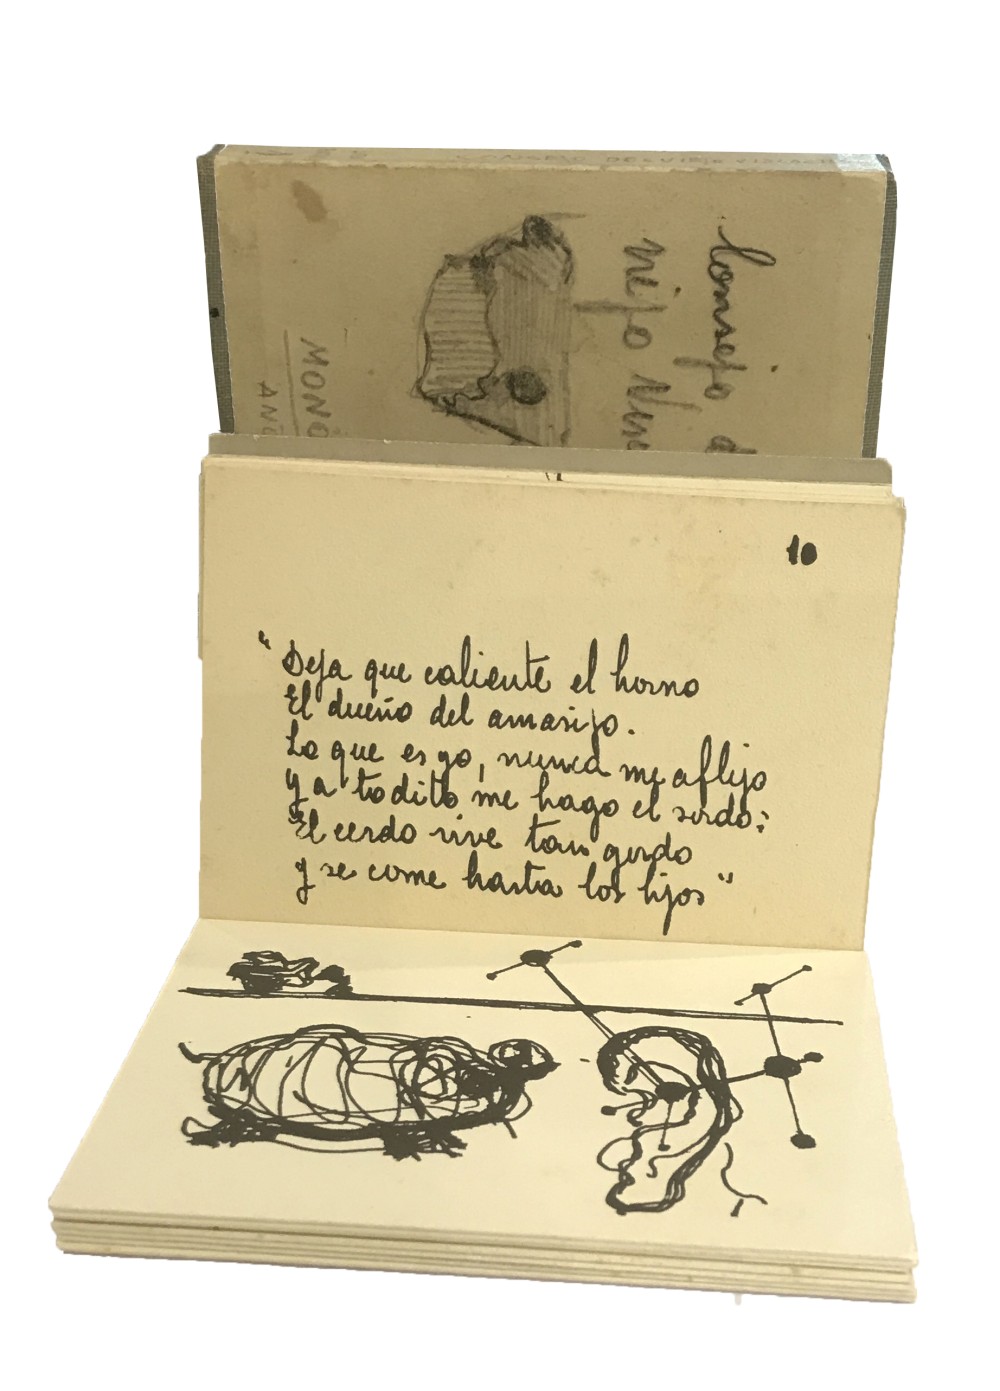 Consejo
viejo
MONO
10
"Deja que caliente el horno
El dueño del amasijo.
Lo que es yo, nunca me aflijo
y a todito me hago el sordo:
El cerdo vive tan gordo
y se come hasta los hijos"